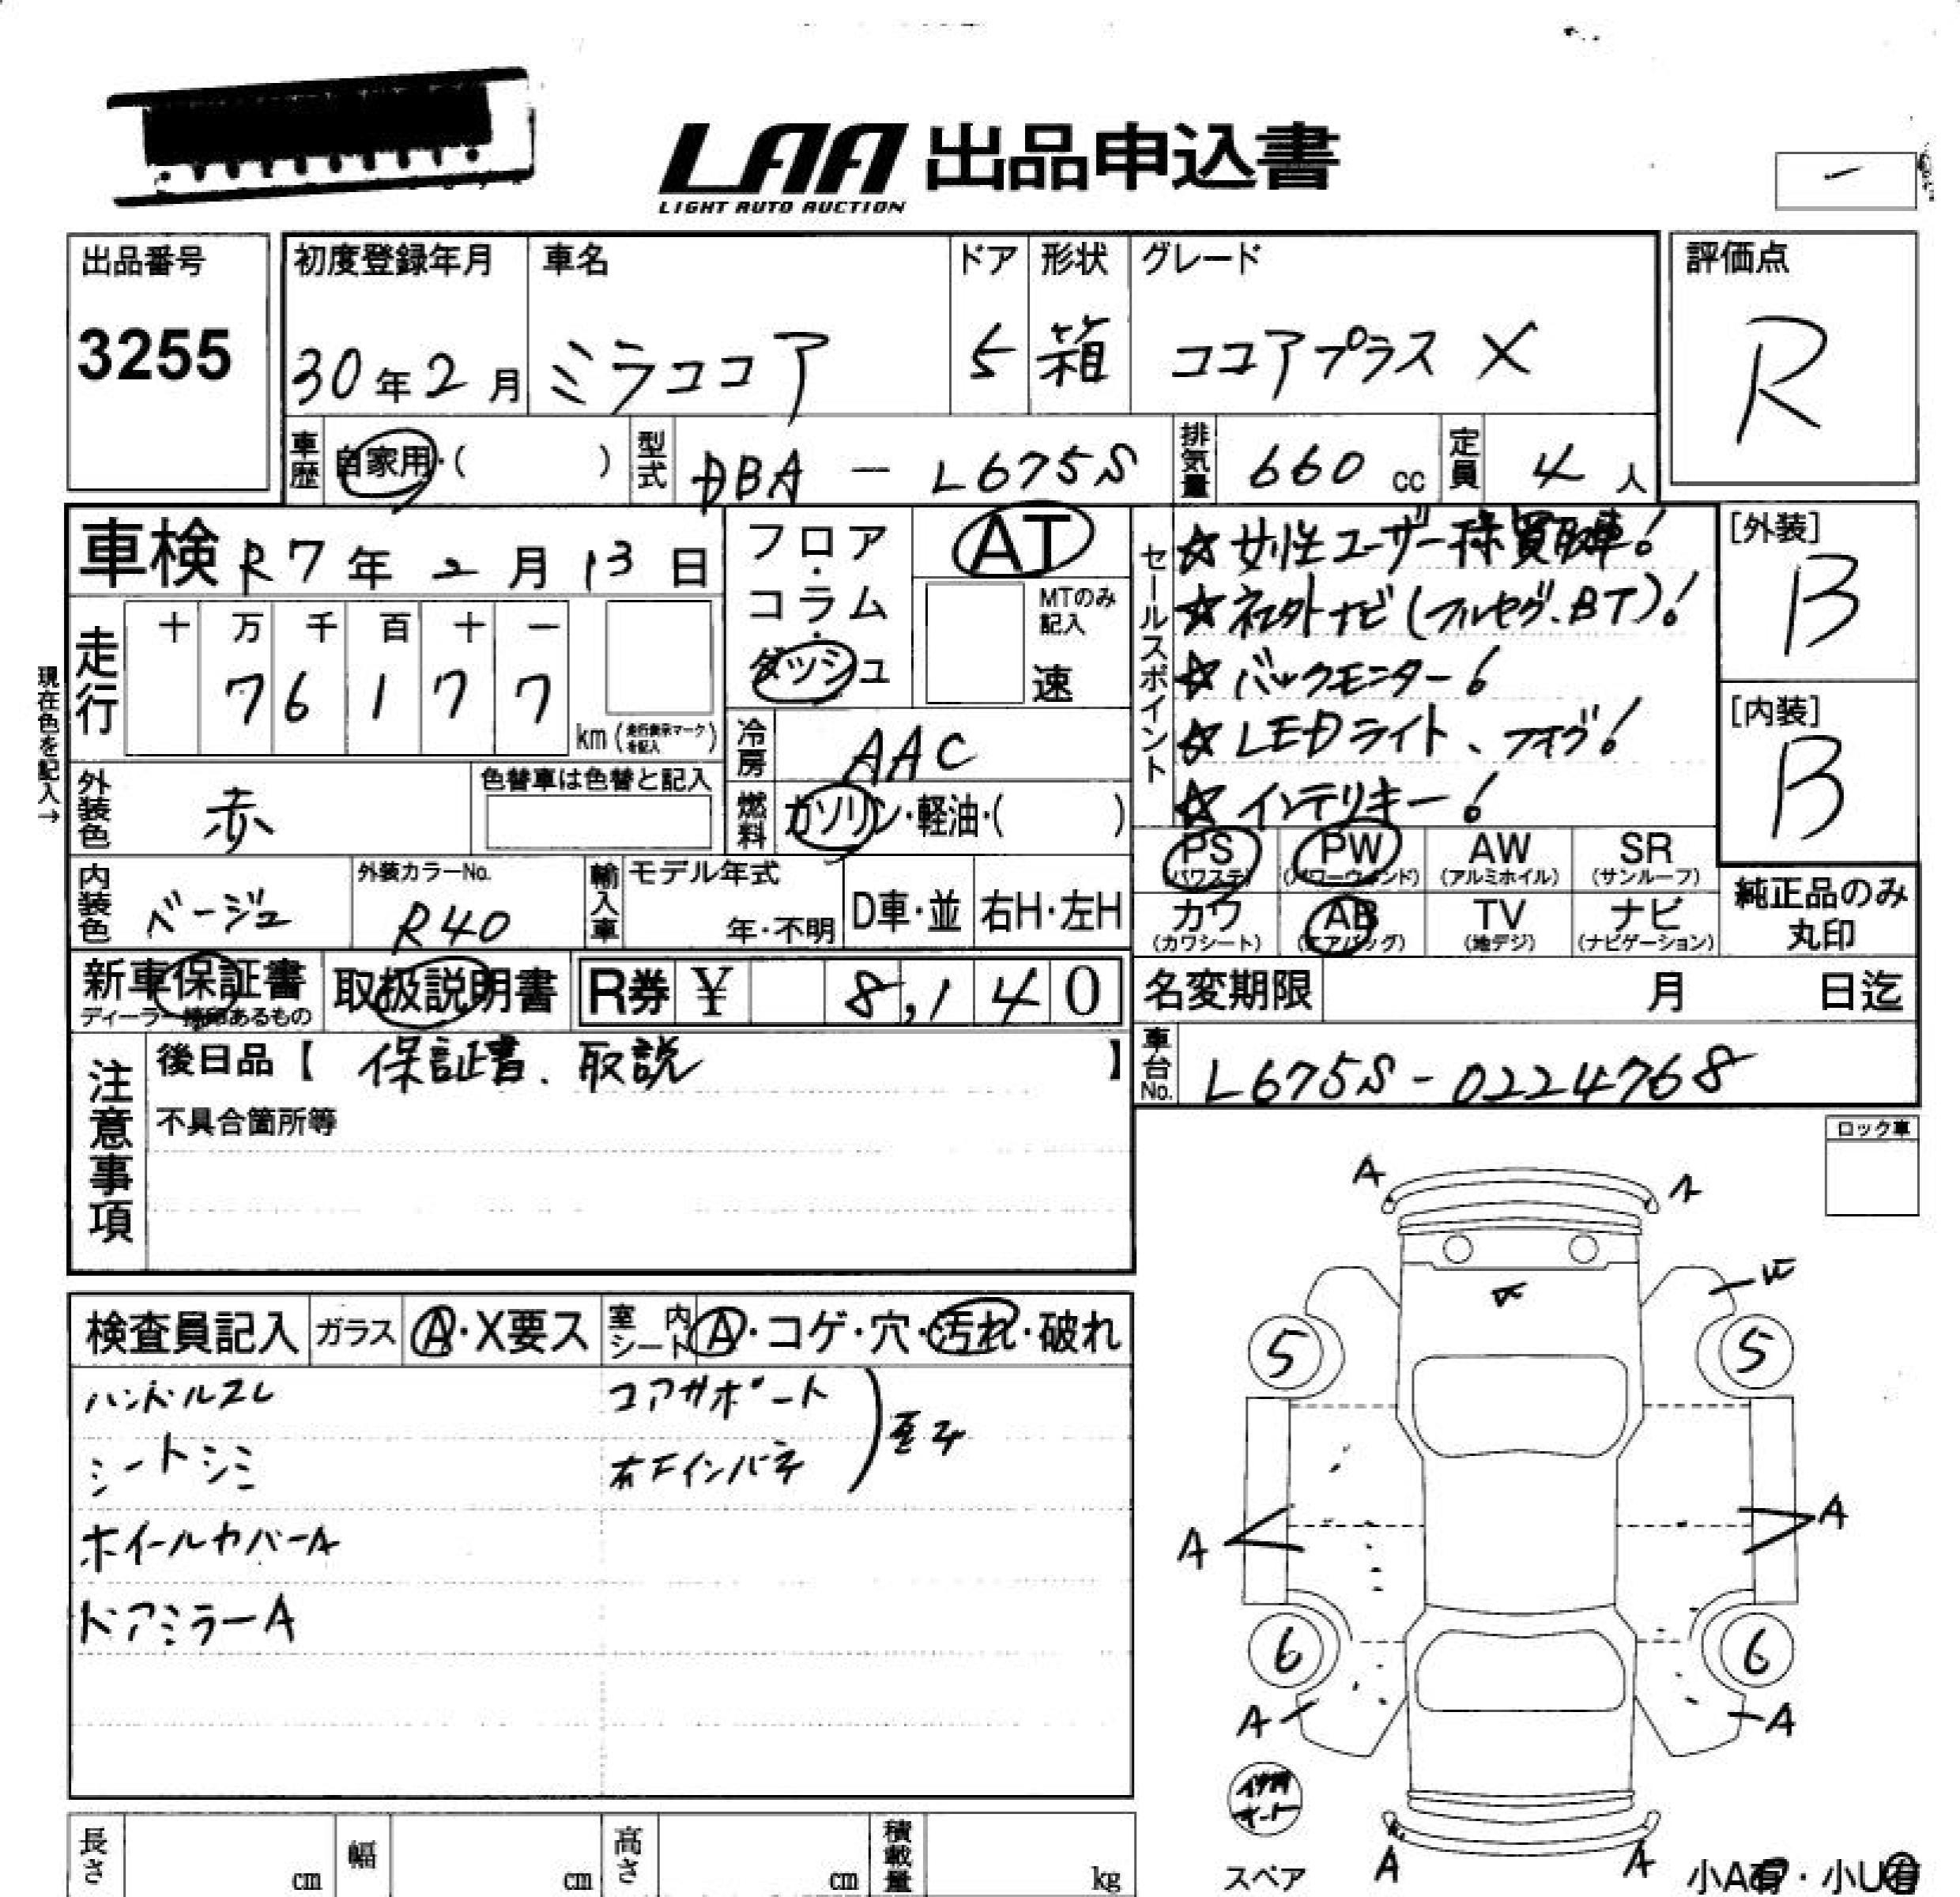 LAA 出品申込書
LIGHT AUTO AUCTION
出品番号
3255
初度登録年月
30年2月
車名
ミラココア
ドア
5
形状
箱
グレード
ココアプラス X
評価点
R
車歴 自家用・( )
型式 DBA - L675S
排気量 660 cc
定員 4 人
車検 R7年2月13日
フロア・コラム・ダッシュ
AT
MTのみ記入
速
セールスポイント
☆女性ユーザー様買取車!
☆社外ナビ(フルセグ、BT)!
☆バックモニター!
☆LEDライト、フォグ!
☆インテリキー!
[外装]
B
[内装]
B
現在色を記入→
走行
十 万 千 百 十 一
7 6 1 7 7
km (走行表示マークを記入)
冷房 AAC
外装色 赤
色替車は色替と記入
燃料 ガソリン・軽油・( )
PS (パワステ)
PW (パワーウィンド)
AW (アルミホイル)
SR (サンルーフ)
カワ (カワシート)
AB (エアバッグ)
TV (地デジ)
ナビ (ナビゲーション)
純正品のみ丸印
内装色 ベージュ
外装カラーNo. R40
輸入車
モデル年式
年・不明
D車・並
右H・左H
新車保証書
ディーラー捺印あるもの
取扱説明書
R券 ¥ 8,140
名変期限 月 日迄
車台No. L675S-0224768
注意事項
後日品【 保証書、取説 】
不具合箇所等
ロック車
検査員記入
ガラス A・X要ス
室内シート A・コゲ・穴・汚れ・破れ
ハンドルスレ
シートシミ
ホイールカバーA
ドアミラーA
コアサポート
右Fインパネ
A
A
5
5
A
A
6
6
A
A
A
A
スペア
小A有・小U有
長さ cm
幅 cm
高さ cm
積載量 kg